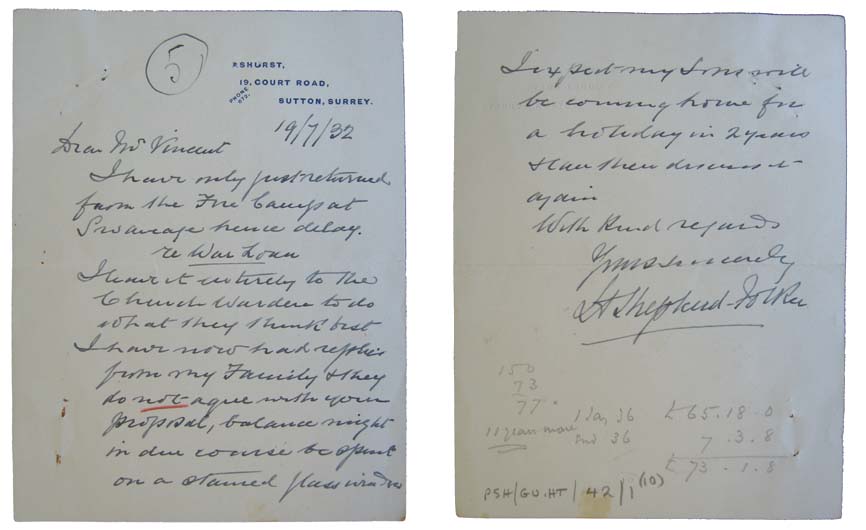 5
ASHURST,
19, COURT ROAD,
PHONE 872.
SUTTON, SURREY.
19/7/32
Dear Mr Vincent
I have only just returned
from the Fire Camp at
Swanage hence delay.
re War Loan
I leave it entirely to the
Church Warden to do
what they think best
I have now had replies
from my Family & they
do not agree with your
proposal, balance might
in due course be spent
on a stained glass window
I expect my Sons will
be coming home for
a holiday in 2 years
& can then discuss it
again
With Kind regards
Yours sincerely
Shepherd-Folker
150
73
77.
11 years more
1 Jan 36 £65.18.0
End 36 7.3.8
£73.1.8
PSH/GU.HT/42/1(10)